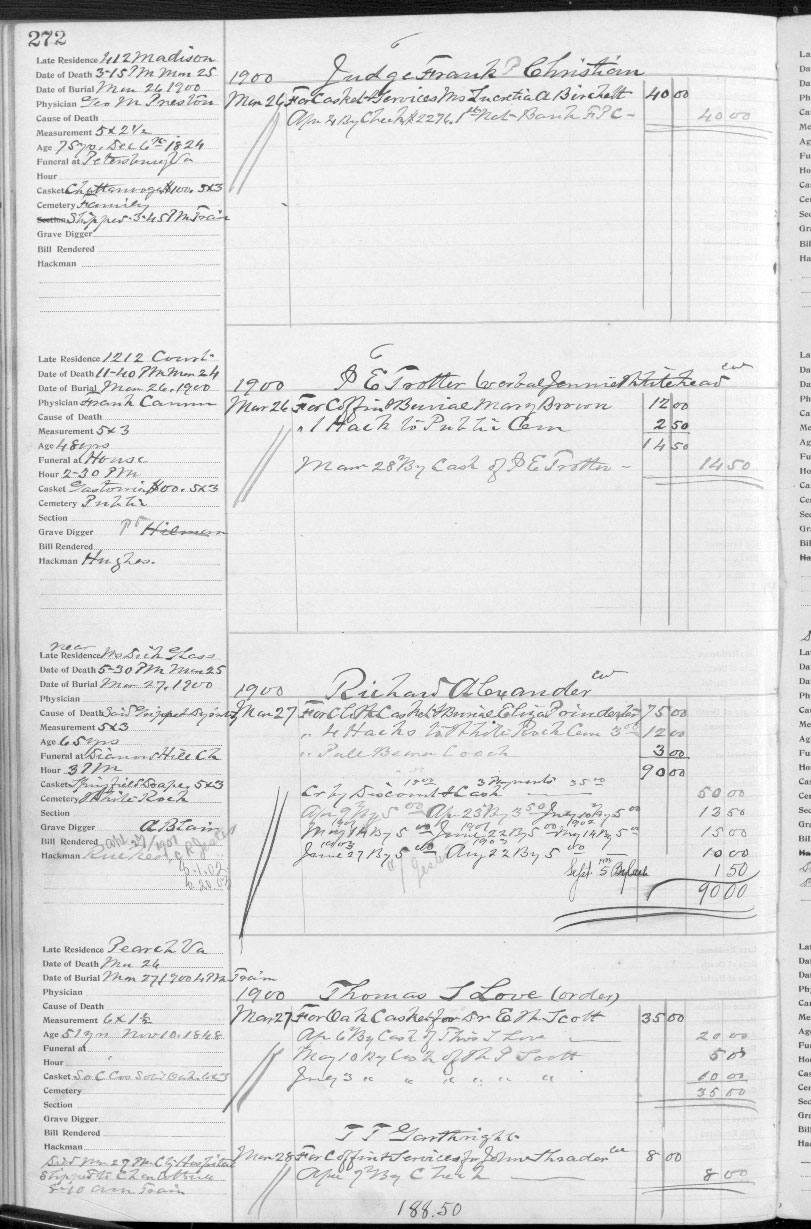 272
Late Residence 412 Madison
Date of Death 3-15 PM Mar 25
Date of Burial Mar 26 1900
Physician Geo M Preston
Cause of Death
Measurement 5x2½
Age 75 yrs, Dec 6th 1824
Funeral at Petersburg Va
Hour
Casket Chattanooga $100. 5x3
Cemetery Family
Section Shipped 3-45 PM Train
Grave Digger
Bill Rendered
Hackman
1900 Judge Frank P Christian
Mar 26 For Casket & Services Mrs Lucretia A Birchett 40 00
Apr 4 By Check # 2276. 1st Nat Bank F P C - 40 00
Late Residence 1212 Court
Date of Death 11-40 PM Mar 24
Date of Burial Mar 26, 1900
Physician Frank Camm
Cause of Death
Measurement 5x3
Age 48 yrs
Funeral at House
Hour 2-30 PM
Casket Gastonia $00. 5x3
Cemetery Public
Section
Grave Digger Hilman
Bill Rendered
Hackman Hughes.
1900 P E Trotter (verbal Jennie Whitehead cw
Mar 26 For Coffin & Burial Mary Brown 12 00
" 1 Hack to Public Cem 2 50
14 50
Mar 28th By Cash of P E Trotter - 14 50
near
Late Residence Mr Dick Glass
Date of Death 5-30 PM Mar 25
Date of Burial Mar 27, 1900
Physician
Cause of Death Said
Measurement 5x3
Age 65 yrs
Funeral at Diamond Hill Ch
Hour 3 PM
Casket Springfield Drape. 5x3
Cemetery White Rock
Section
Grave Digger A Blain
Bill Rendered 1901
Hackman
6.1.02
6.20.03
1900 Richard Alexander cw
Mar 27 For Cloth Casket & Burial Eliza Poindexter 75 00
" 4 Hacks to White Rock Cem 3 00 12 00
" Pall Bearer Coach 3 00
90 00
Cr by Discount & Cash 3 Payments 35 00 50 00
Apr 9th By 5 00 Apr 25 By 3 50 July 10 By 5 00 13 50
May 14 By 5 00 June 22 By 5 00 May 14 By 5 00 15 00
June 27 By 5 00 Aug 22 By 5 00 10 00
Sept 5 By Cash 1 50
90 00
Late Residence Pearch Va
Date of Death Mar 26
Date of Burial Mar 27, 1900 4 PM Train
Physician
Cause of Death
Measurement 6x1 8/12
Age 51 yrs Nov 10. 1848
Funeral at
Hour
Casket So C Co Solid Oak. 6x3
Cemetery
Section
Grave Digger
Bill Rendered
Hackman
1900 Thomas S Love (order)
Mar 27 For Oak Casket for Dr E Th Scott 35 00
Apr 6 By Cash of Thos S Love 20 00
May 10 By Cash of Th P Scott 5 00
July 3 " " " " " " 10 00
35 00
Died Mar 27 PM City Hospital
Shipped to Charlottesville
5-10 am Train
T T Garthright
Mar 28 For Coffin & Services for John Shrader cw 8 00
Apr 9th By Check 8 00
188.50